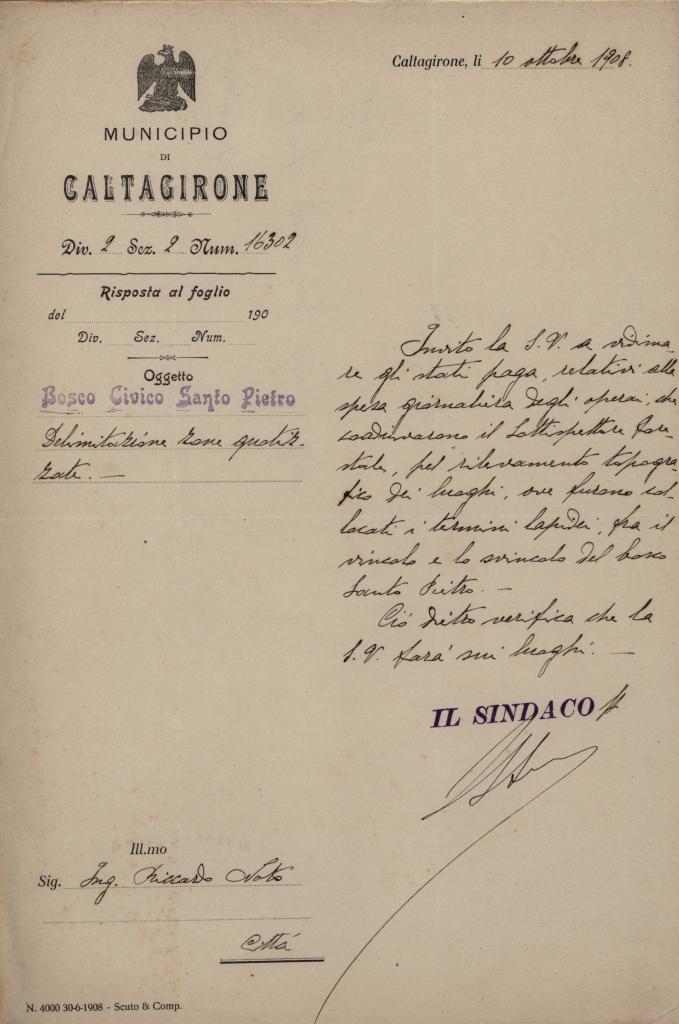 MUNICIPIO
DI
CALTAGIRONE
Div. 2 Sez. 2 Num. 16302
Risposta al foglio
del 190
Div. Sez. Num.
Oggetto
Bosco Civico Santo Pietro
Delimitazione zone quotiz-
zate. —
Caltagirone, li 10 ottobre 1908.
Invito la S.V. a vidima-
re gli stati paga, relativi alla
spesa giornaliera degli operai, che
coadiuvarono il Sottispettore fore-
stale, pel rilevamento topogra-
fico dei luoghi, ove furono col-
locati i termini lapidei, fra il
vincolo e lo svincolo del bosco
Santo Pietro. —
Ciò dietro verifica che la
S.V. farà sui luoghi. —
IL SINDACO
Ill.mo
Sig. Ing. Riccardo Noto
Città
N. 4000 30-6-1908 - Scuto & Comp.